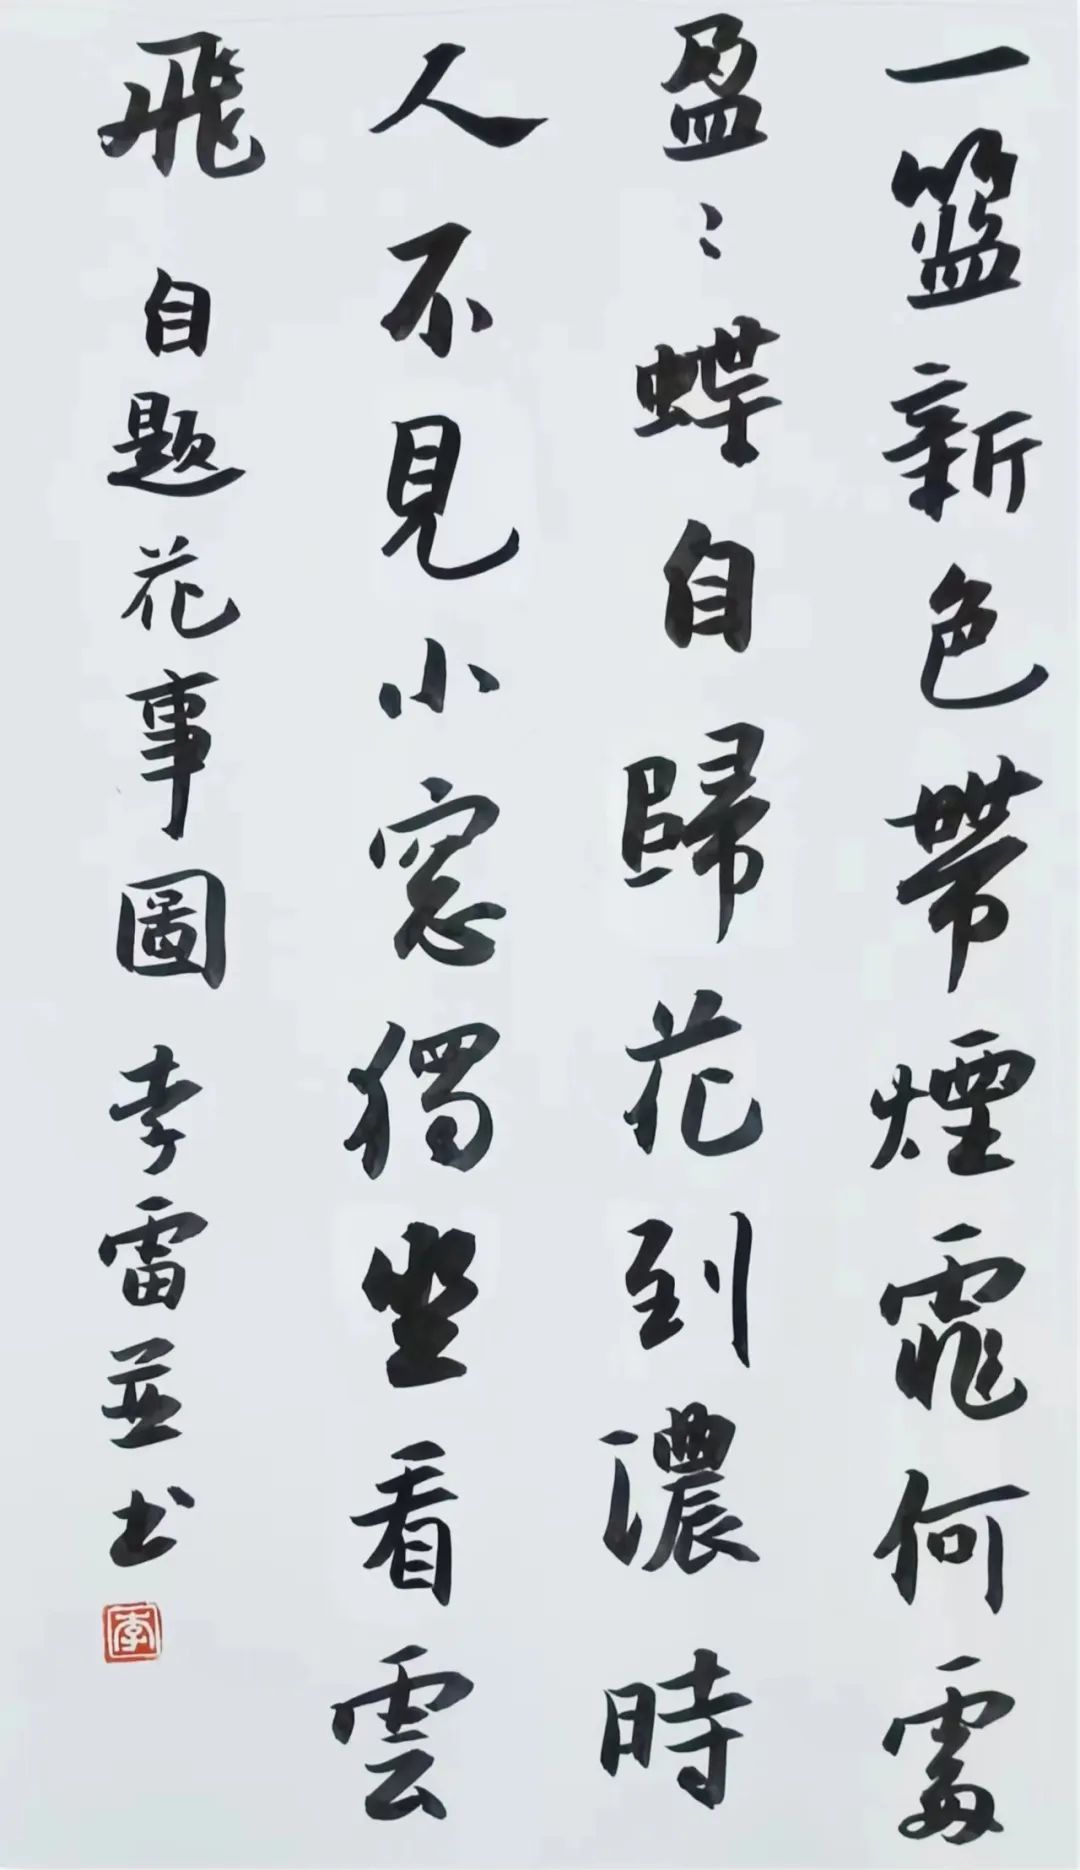 一籃新色帶煙霏何處
盈〻蝶自歸花到濃時
人不見小窓獨坐看雲
飛 自题花事圖 李雷並书
李